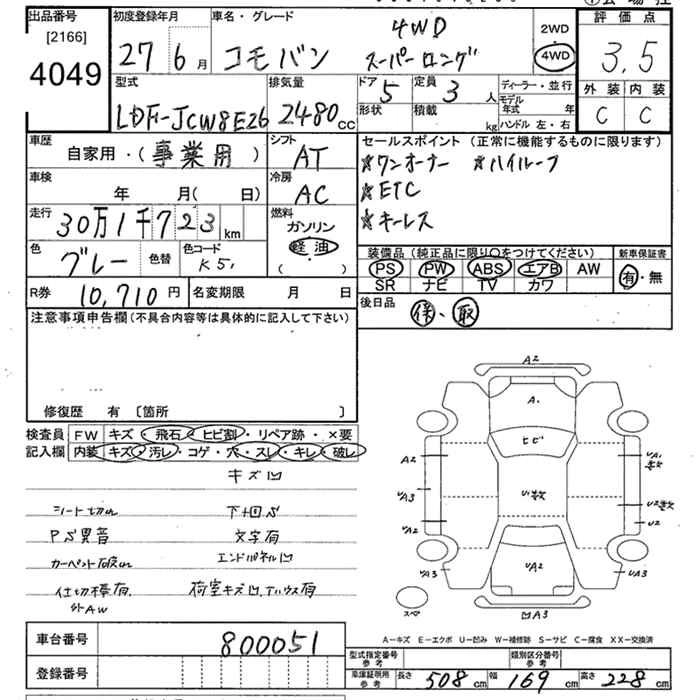 出品番号 初度登録年月 車名・グレード 評価点
[2166]
4049
27 6月 コモバン 4WD スーパーロング 2WD 4WD 3.5
型式 排気量 ドア 定員 ディーラー・並行 外装 内装
LDF-JCW8E26 2480cc 5 3人 モデル年式 年 C C
形状 積載 kg ハンドル 左・右
車歴 シフト セールスポイント (正常に機能するものに限ります)
自家用・(事業用) AT ☆ワンオーナー ☆ハイルーフ
車検 冷房 ☆ETC
年 月(日) AC ☆キーレス
走行 30万1千723km 燃料 ガソリン
軽油
( . )
装備品 (純正品に限り○をつけてください) 新車保証書
色 グレー 色替 色コード K51 PS PW ABS エアB AW 有・無
SR ナビ TV カワ
R券 10,710円 名変期限 月 日 後日品 保、取
注意事項申告欄(不具合内容等は具体的に記入して下さい)
修復歴 有 [箇所 ]
検査員 FW キズ・飛石・ヒビ割・リペア跡・×要
記入欄 内装 キズ・汚レ・コゲ・穴・スレ・キレ・破レ
キズ凹
シート切れ 下廻りS
PS異音 文字有
カーペット破れ エンドパネル凹
仕切棒有 荷室キズ凹、
外AW
A2
A.
ヒビ
A2 UA1 多数
UA3 U1多数 U2多数
UA2 U2
UA3 UA2 UA3
スペア 凹A3
A−キズ E−エクボ U−凹み W−補修跡 S−サビ C−腐食 XX−交換済
車台番号 800051 型式指定番号 参考 類別区分番号 参考
登録番号 車庫証明用 参考 長さ 508cm 幅 169cm 高さ 228cm